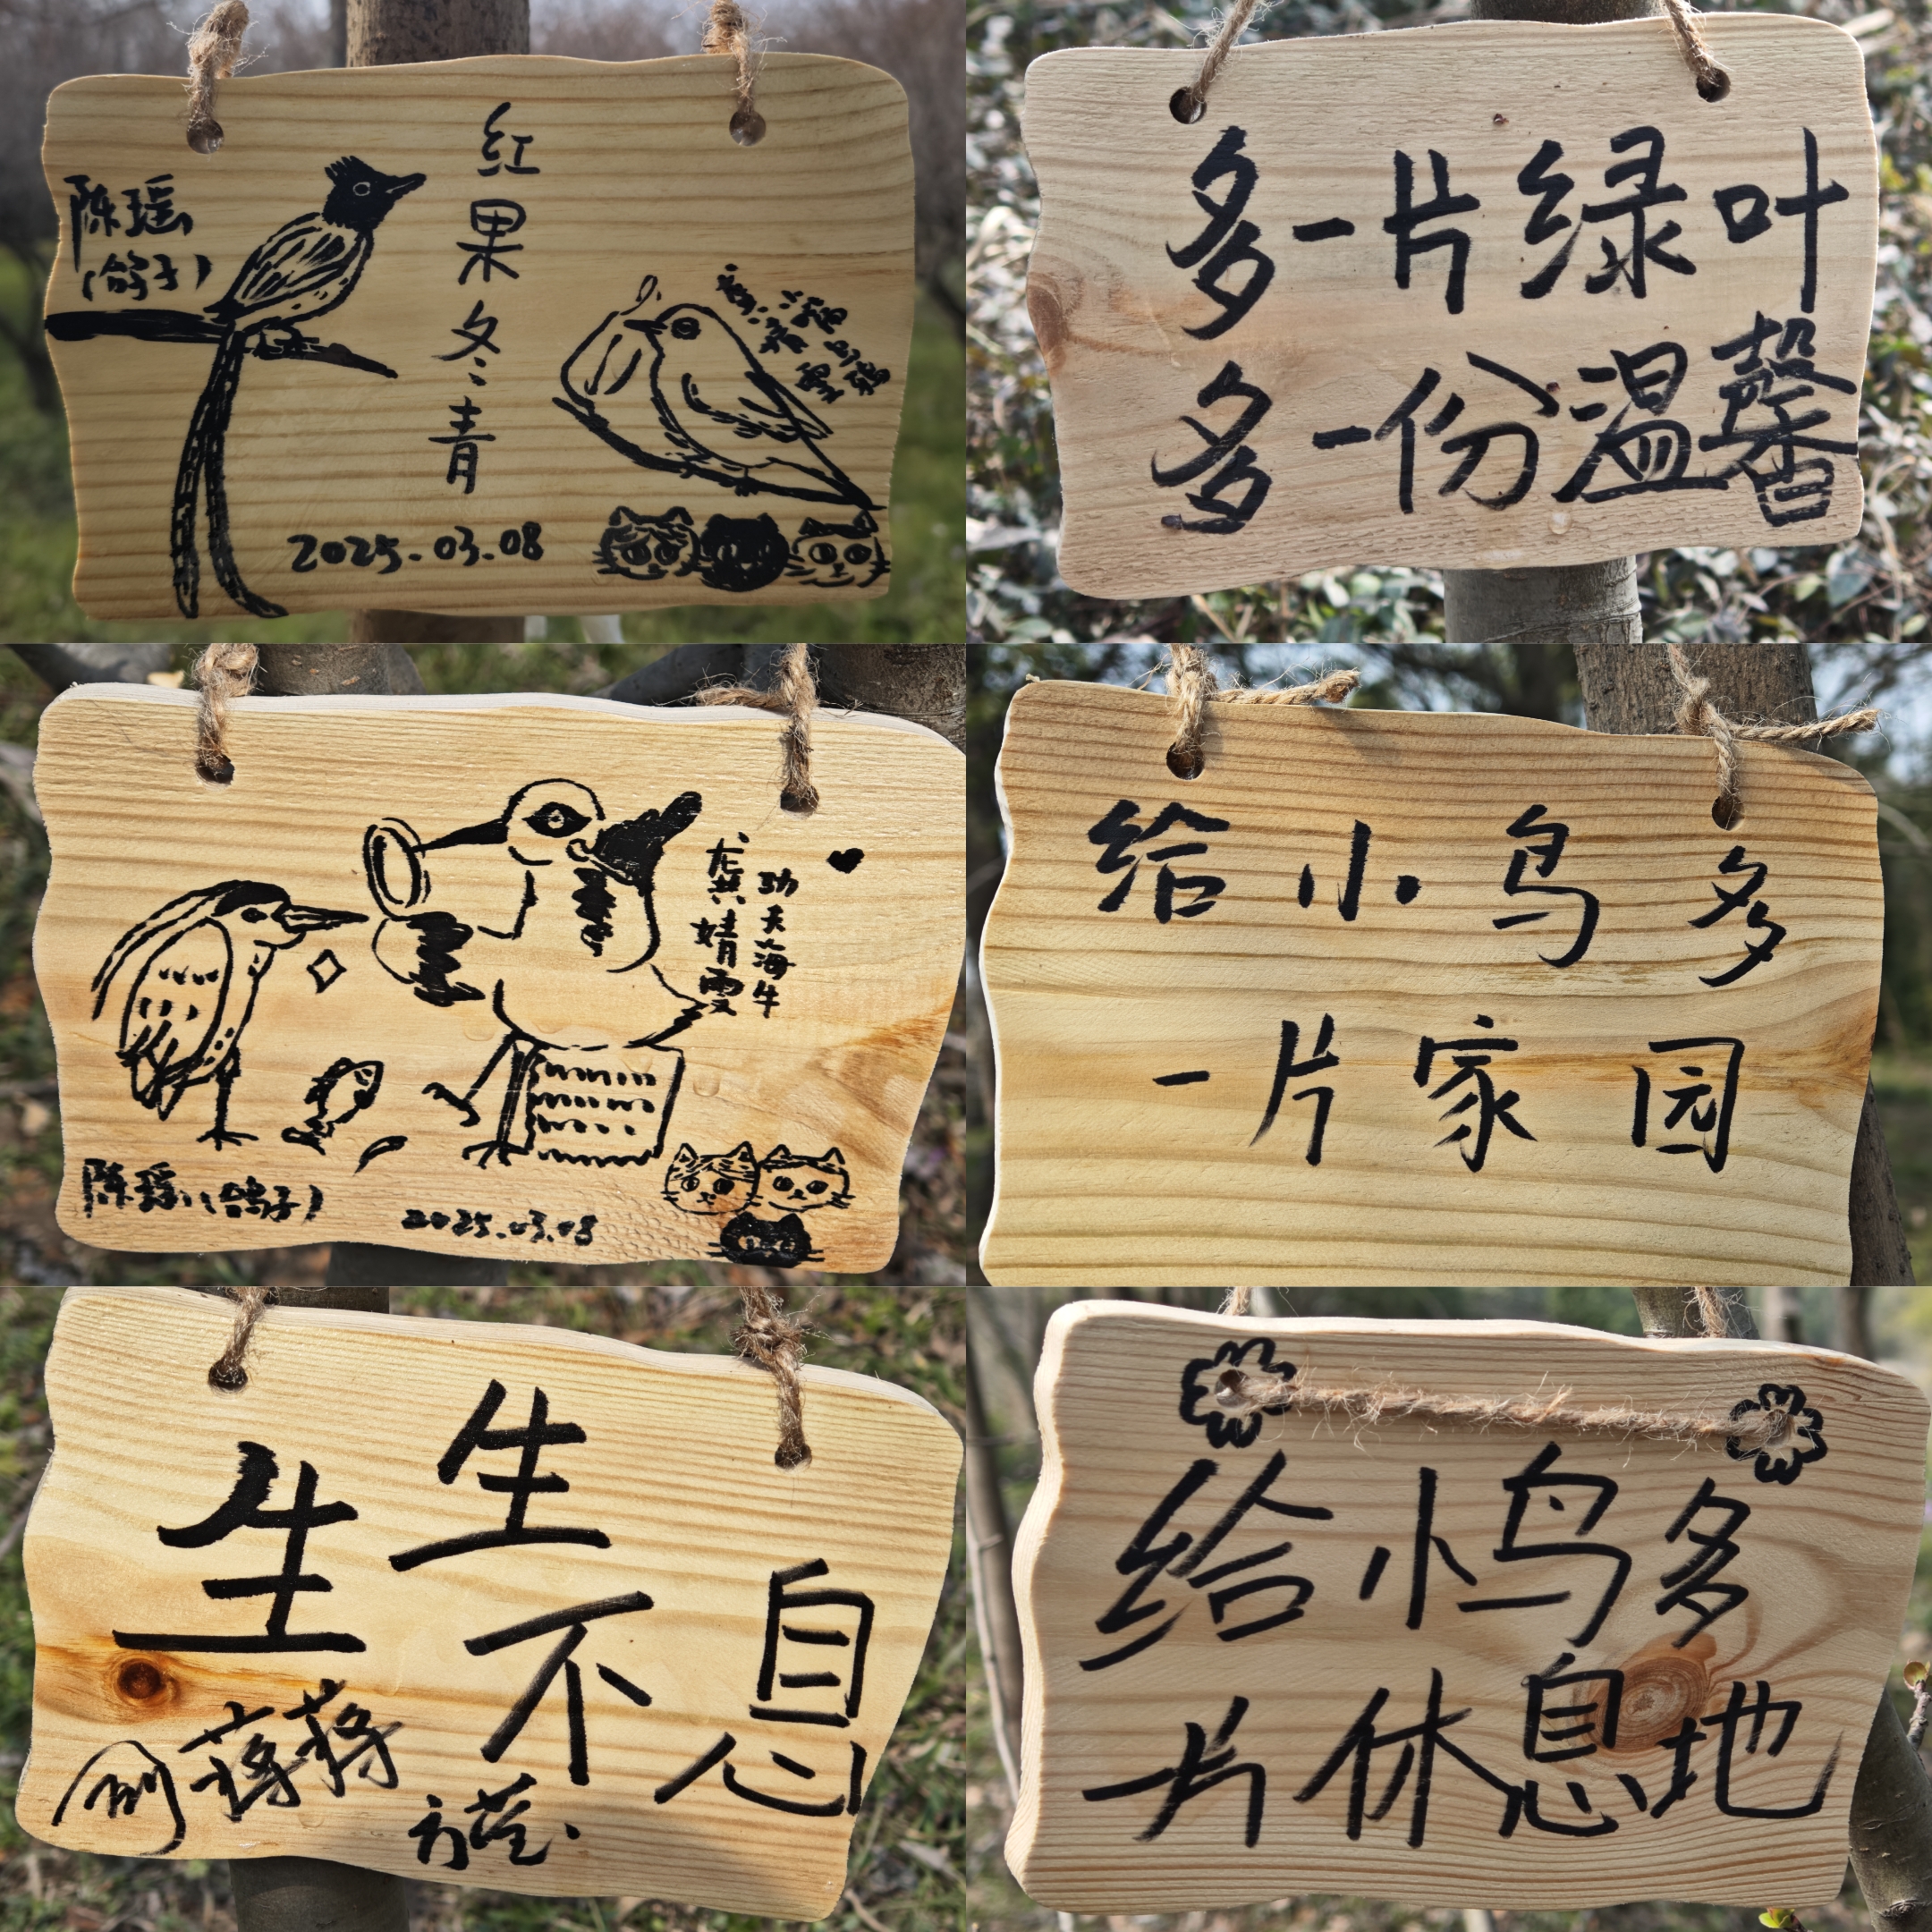 红果冬青
陈瑶
(鸽子)
2025.03.08
多一片绿叶
多一份温馨
功夫海牛
龚婧雯
陈瑶(鸽子)
2025.03.08
给小鸟多
一片家园
生生不息
蒋蒋
给小鸟多
一片休息地